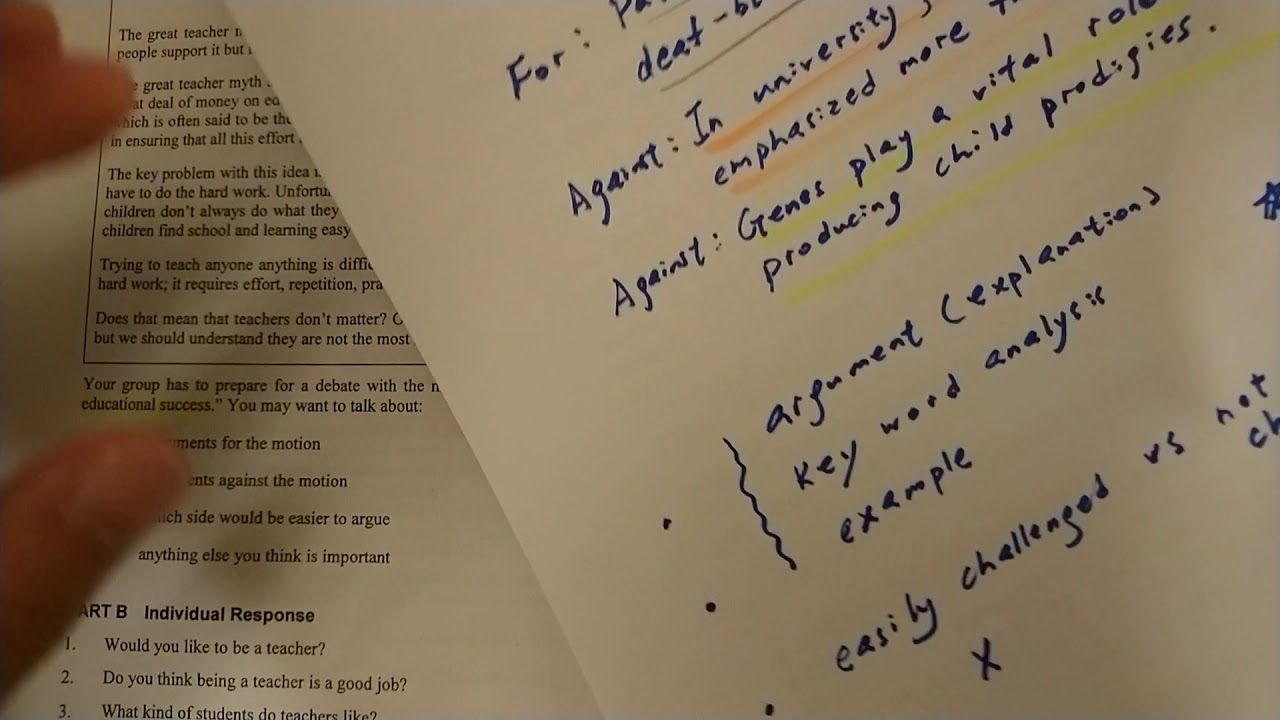 The great teacher
people support it but
great teacher myth
deal of money on
which is often said to be the
in ensuring that all this effort
The key problem with this idea
have to do the hard work.
children don't always do what they
children find school and learning easy
Trying to teach anyone anything is
hard work; it requires effort, repetition,
Does that mean that teachers don't matter?
but we should understand they are not the most
Your group has to prepare for a debate with the
educational success." You may want to talk about:
for the motion
against the motion
side would be easier to argue
anything else you think is important
PART B Individual Response
1. Would you like to be a teacher?
2. Do you think being a teacher is a good job?
3. What kind of students do teachers like?
For:
Against: In university,
emphasized more
Against: Genes play a vital role
producing child prodigies.
argument (explanation)
key word analysis
example
easily challenged vs not
X